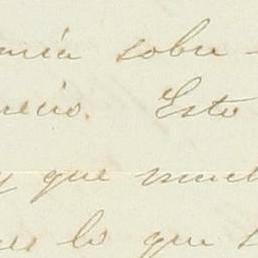 mia sobre
necio. Esto
y que much
es lo que s